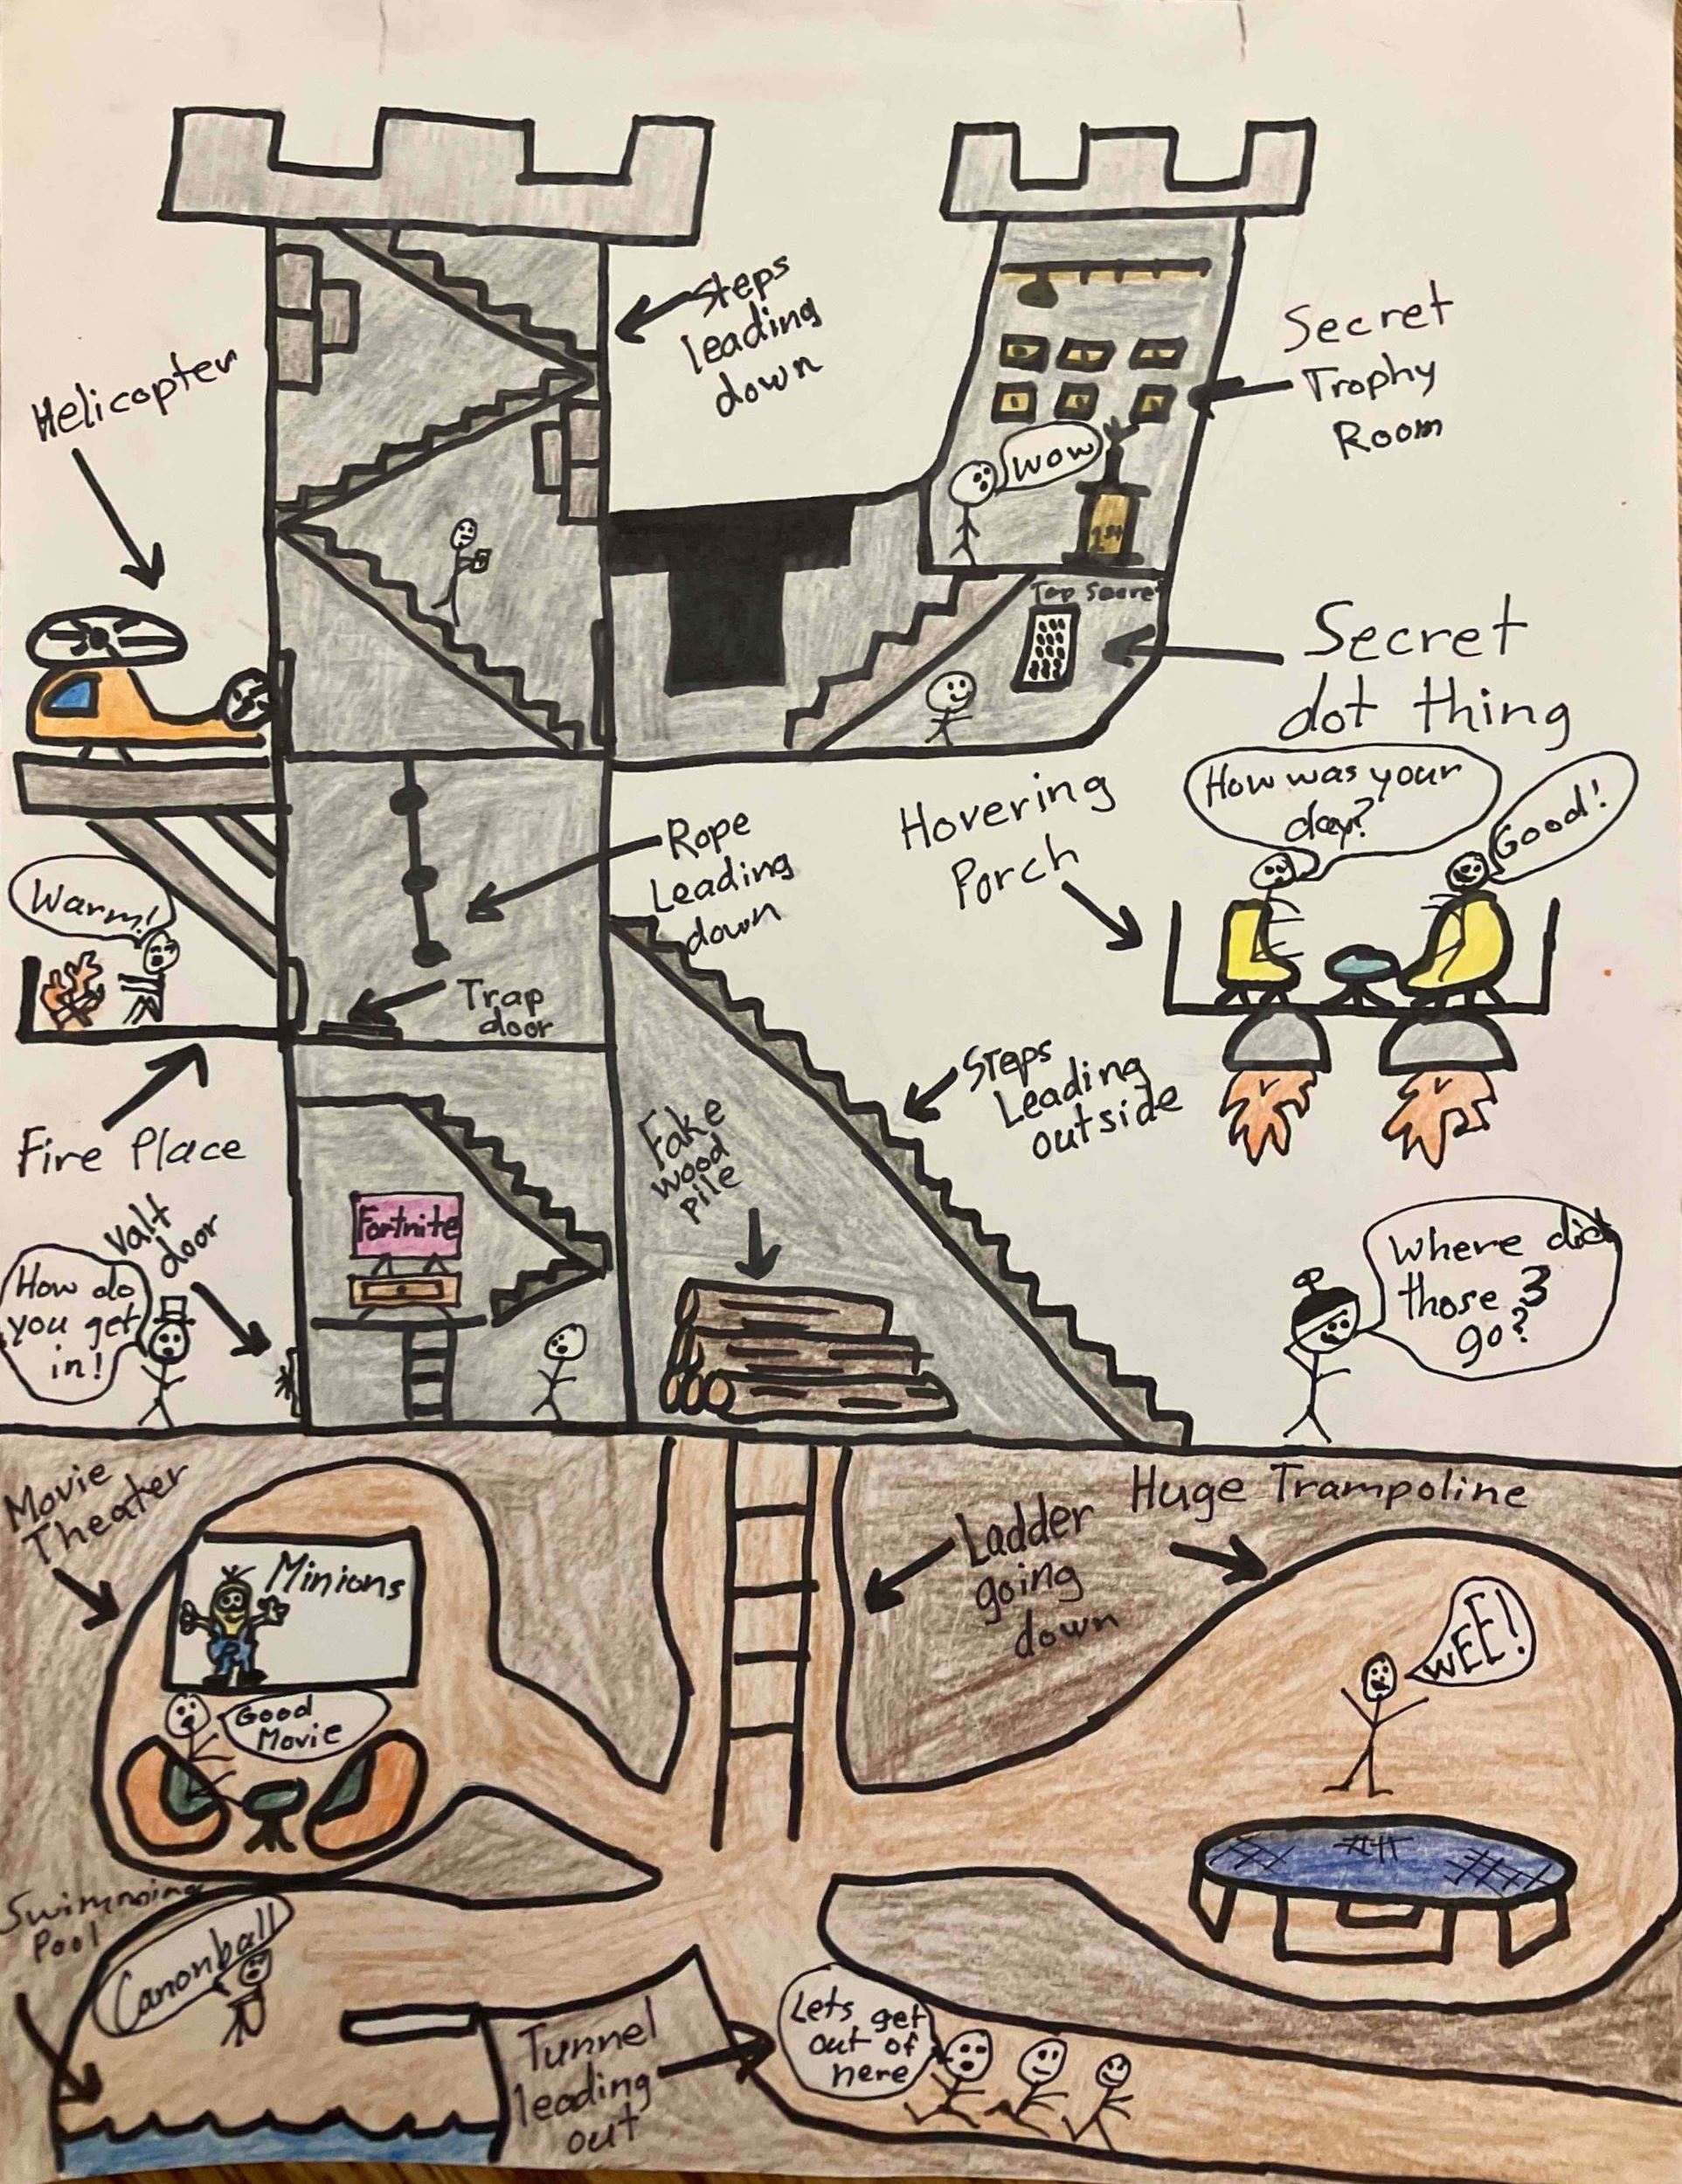 Steps
leading
down
Helicopter
Secret
Trophy
Room
WOW
1st
Top Secret
Secret
dot thing
How was your
day?
Good!
Hovering
Porch
Rope
Leading
down
Warm!
Trap
door
Steps
Leading
outside
Fire Place
Fake
wood
pile
Valt
door
How do
you get
in!
Fortnite
Where did
those 3
go?
Movie
Theater
Minions
Good
Movie
Ladder
going
down
Huge Trampoline
WEE!
Swimming
Pool
Canonball
Tunnel
leading
out
Lets get
out of
here